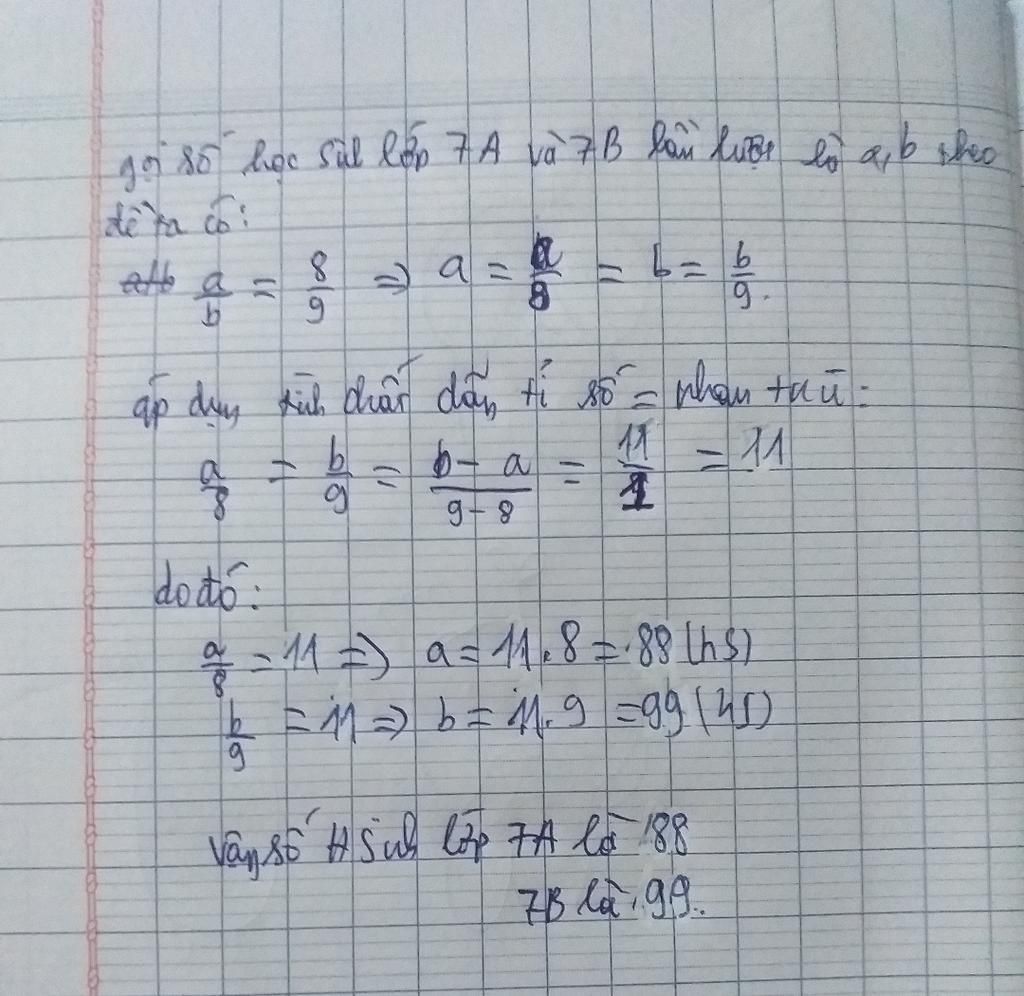 gọi số học sinh lớp 7A và 7B lần lượt là a, b theo
đề ta có:
a/b = 8/9 => a = a/8 = b = b/9.
áp dụng tính chất dãy tỉ số = nhau ta có:
a/8 = b/9 = b-a/9-8 = 11/1 = 11
do đó:
a/8 = 11 => a = 11.8 = 88 (hs)
b/9 = 11 => b = 11.9 = 99 (hs)
Vậy số H Sinh lớp 7A là 88
7B là 99.